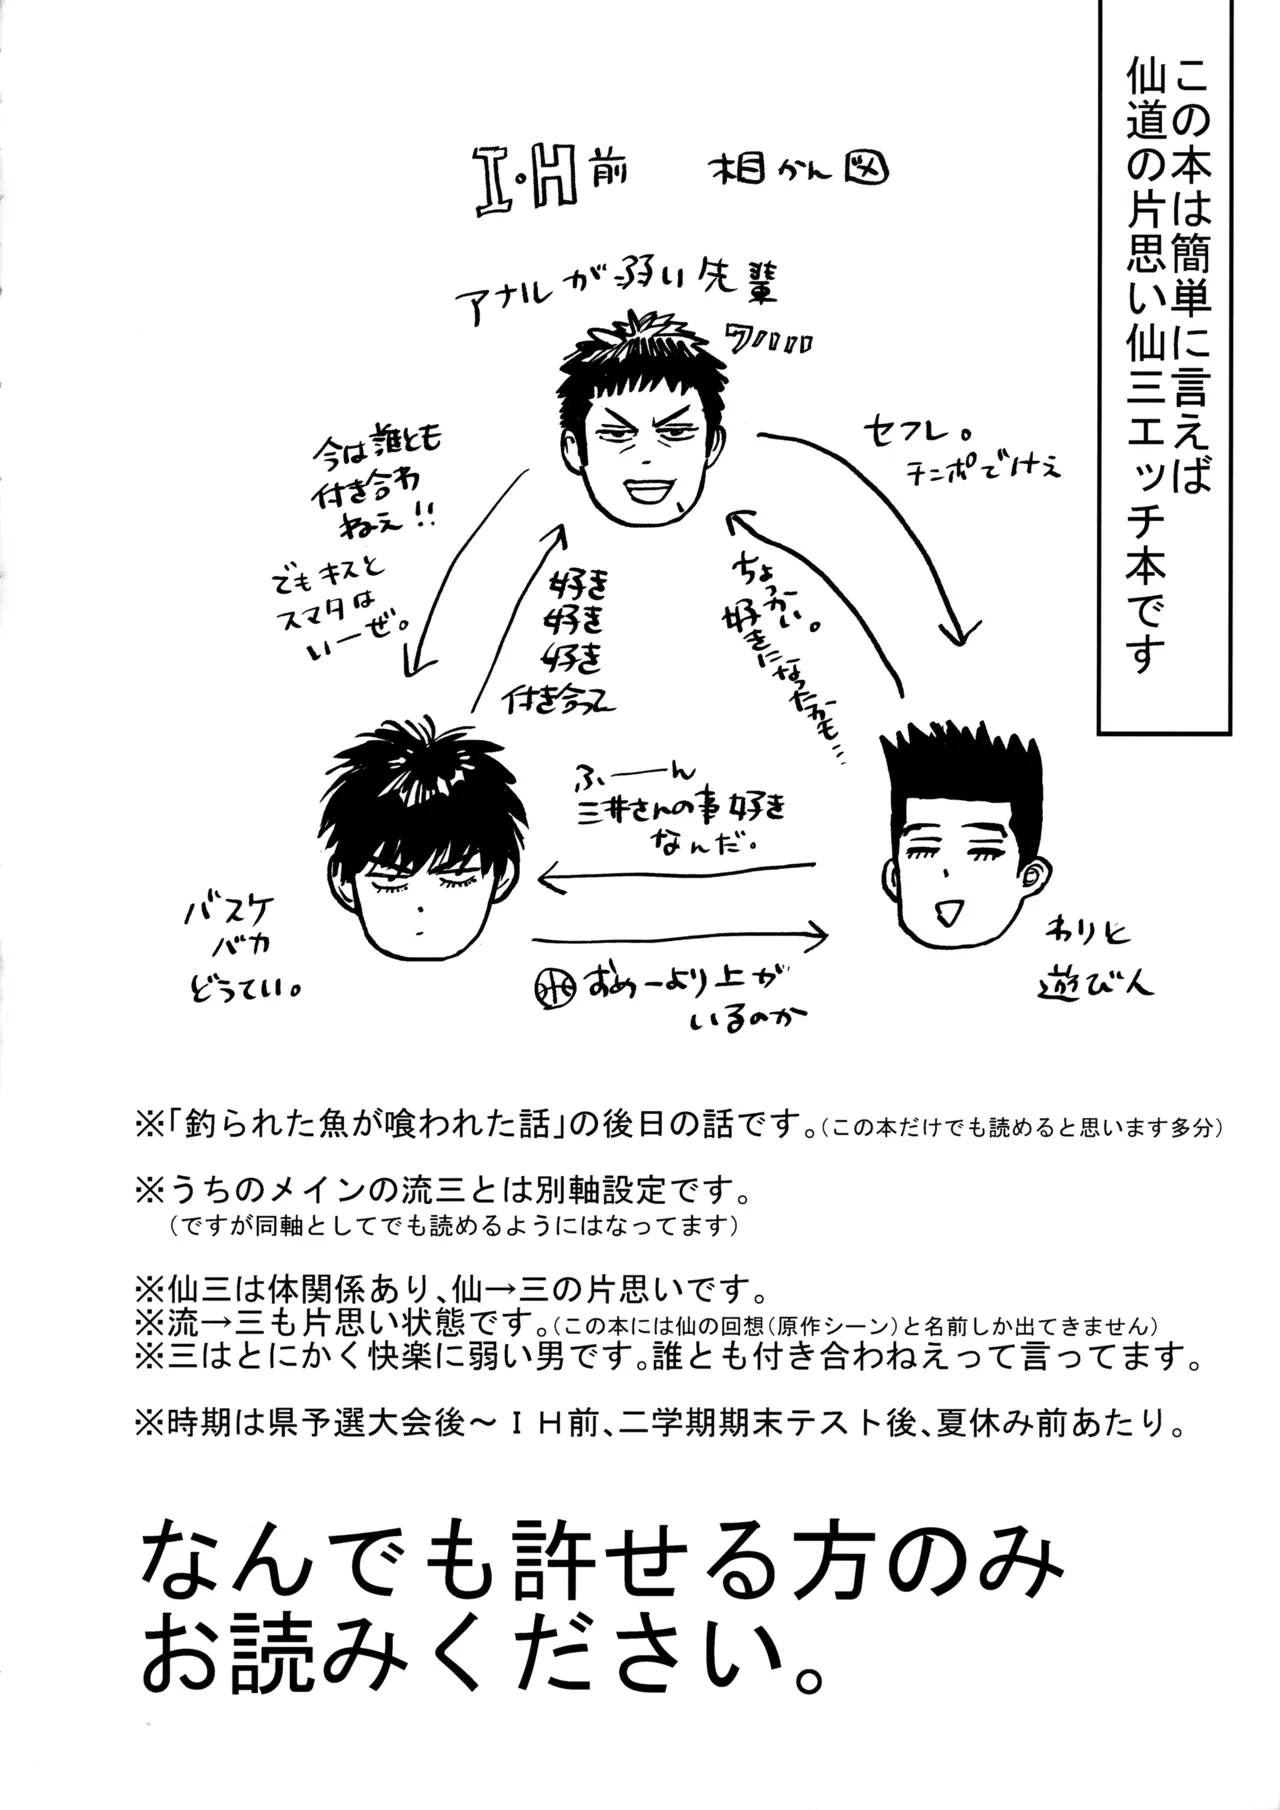 この本は簡単に言えば
仙道の片思い仙三エッチ本です
I・H前 相かん図
アナルが弱い先輩
ワハハハ
今は誰とも
付き合わ
ねえ!!
でもキスと
スマタは
いーぜ。
好き
好き
好き
付き合って
セフレ。
チンポでけえ
ちょっかい。
好きになったかも…
ふーーん
三井さんの事好き
なんだ。
おめーより上が
いるのか
バスケ
バカ
どうてい。
わりと
遊び人
※「釣られた魚が喰われた話」の後日の話です。(この本だけでも読めると思います多分)
※うちのメインの流三とは別軸設定です。
(ですが同軸としてでも読めるようにはなってます)
※仙三は体関係あり、仙→三の片思いです。
※流→三も片思い状態です。(この本には仙の回想(原作シーン)と名前しか出てきません)
※三はとにかく快楽に弱い男です。誰とも付き合わねえって言ってます。
※時期は県予選大会後~IH前、二学期期末テスト後、夏休み前あたり。
なんでも許せる方のみ
お読みください。